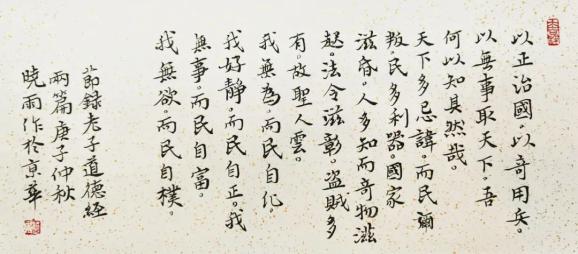 以正治國。以奇用兵。
以無事取天下。吾
何以知其然哉。
天下多忌諱。而民彌
叛。民多利器。國家
滋昏。人多知而奇物滋
起。法令滋彰。盜賊多
有。故聖人雲。
我無為。而民自化。
我好靜。而民自正。我
無事。而民自富。
我無欲。而民自樸。
節錄老子道德經
兩篇庚子仲秋
曉雨作於京華